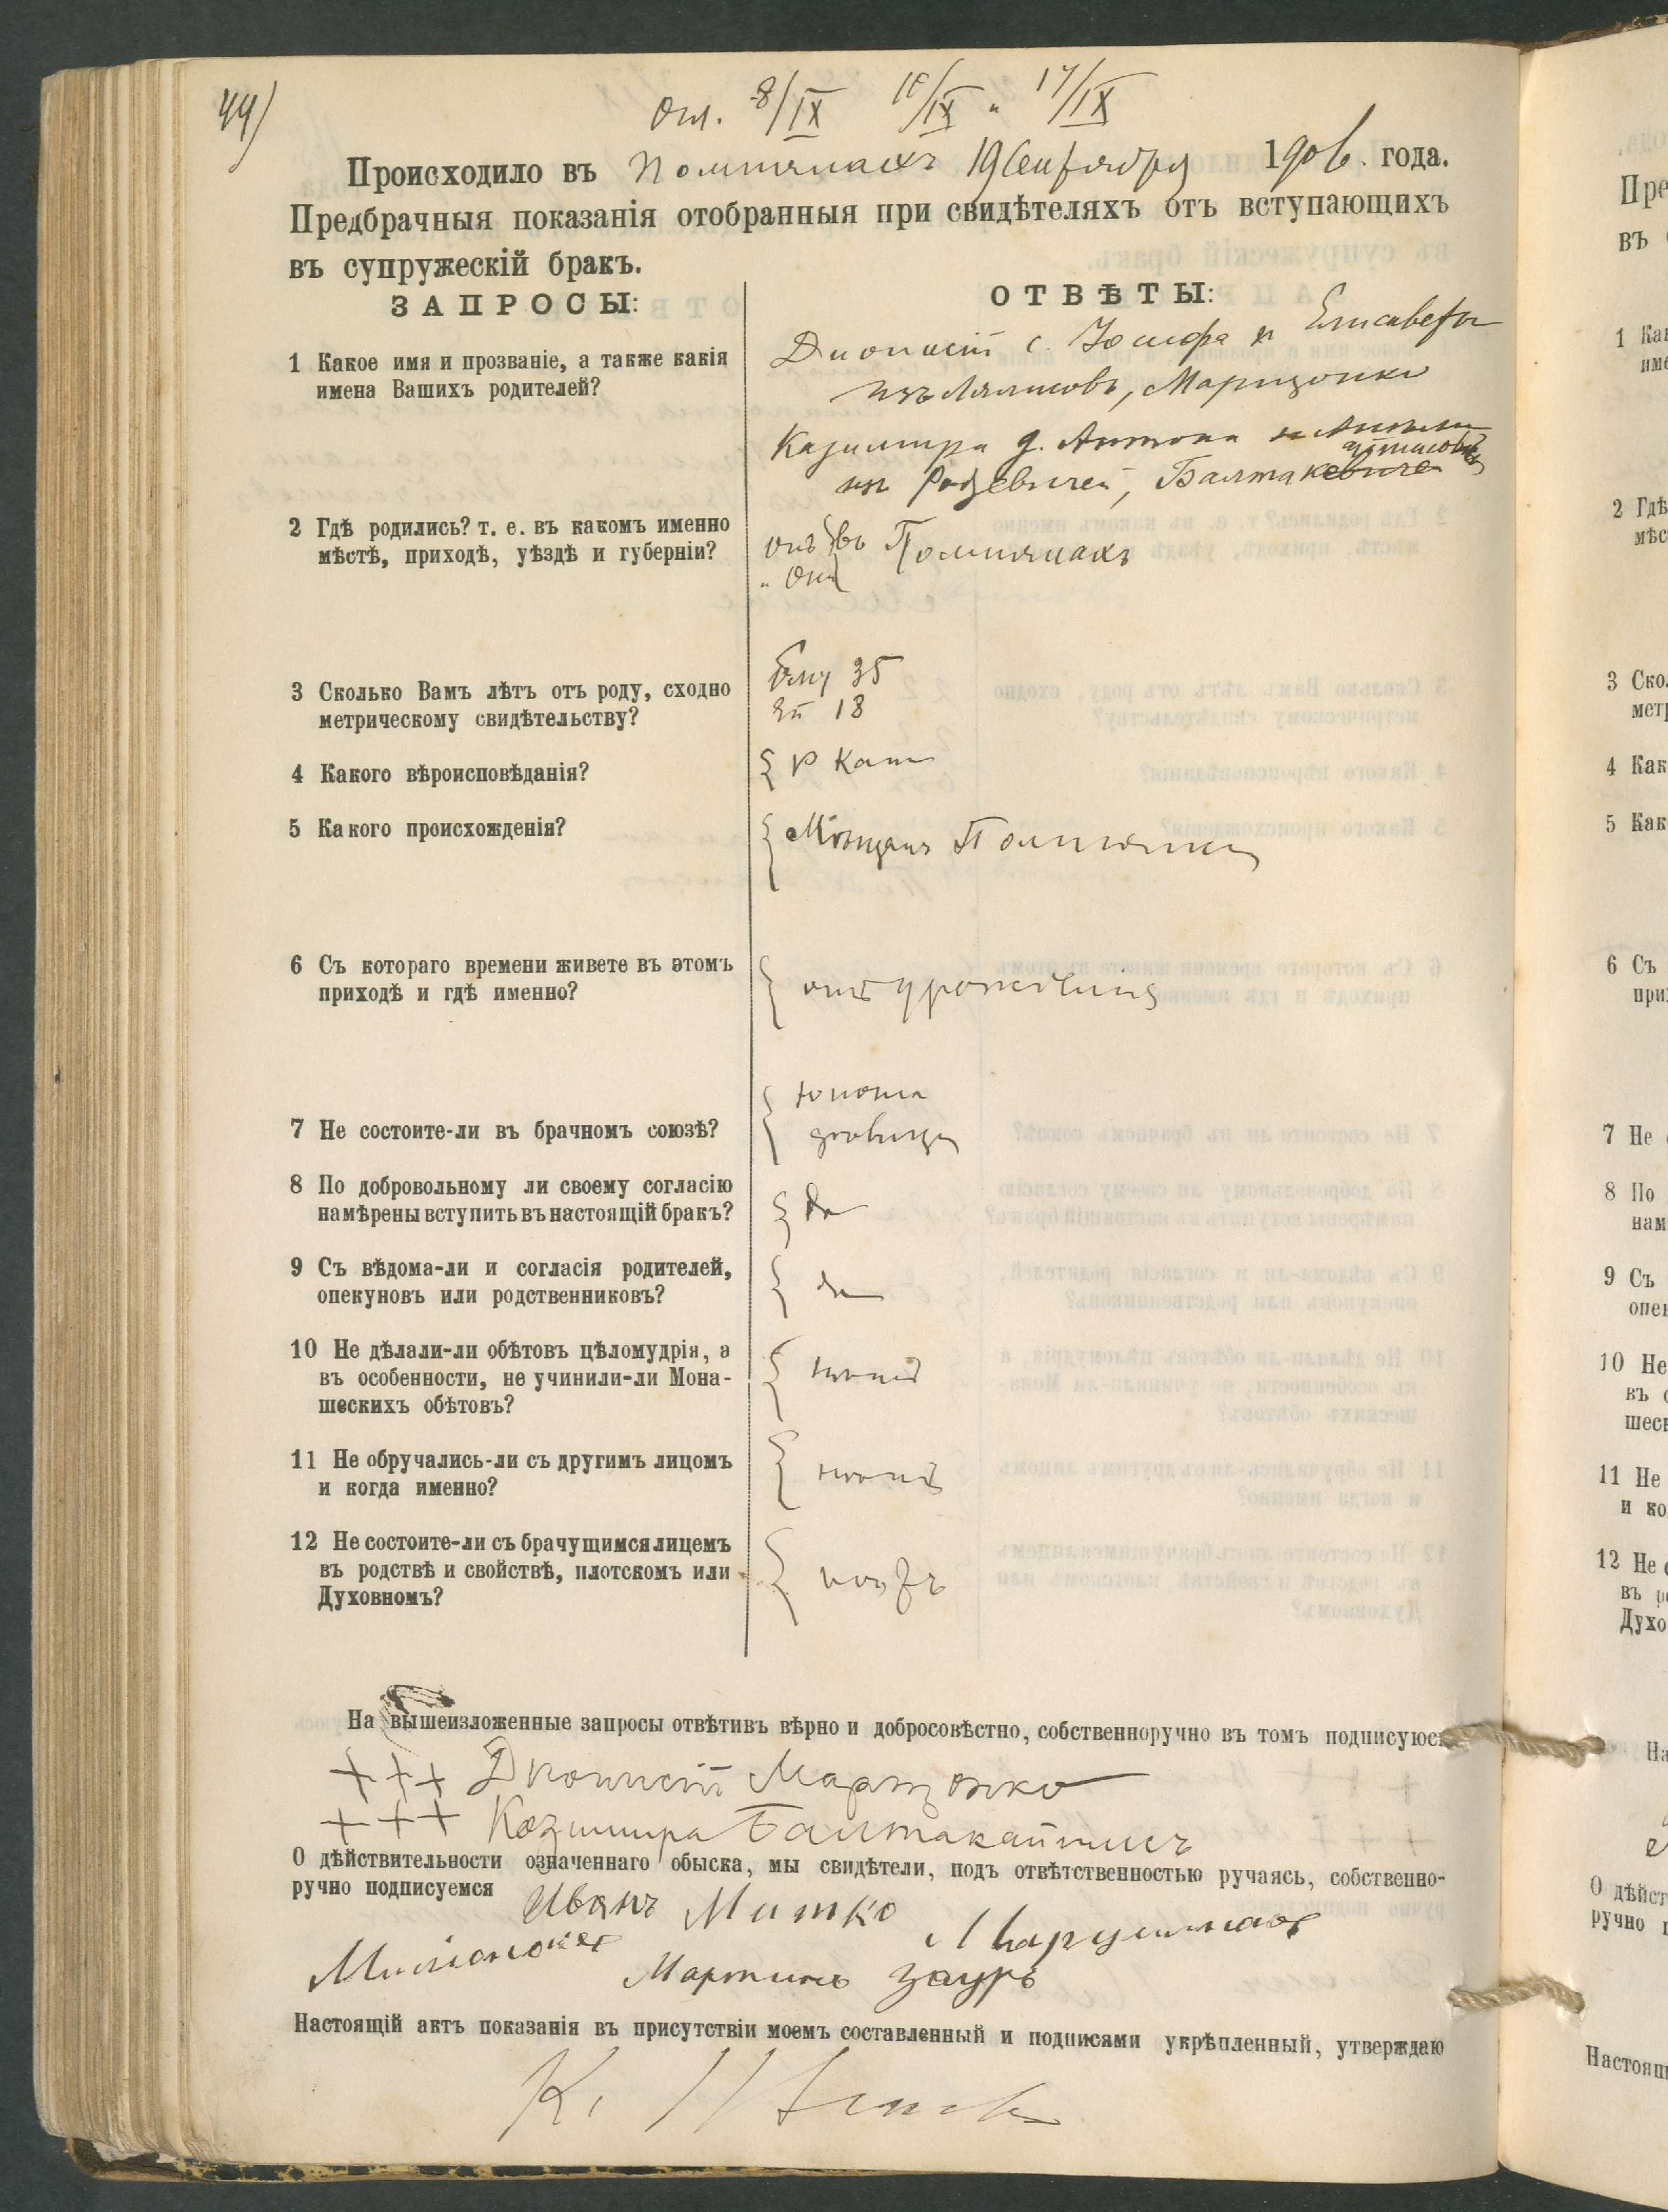 44)
Огл. 8/IX 10/IX и 17/IX
Происходило въ 19 Сентября 1906. года.
Предбрачныя показанія отобранныя при свидѣтеляхъ отъ вступающихъ
въ супружескій бракъ.
ЗАПРОСЫ:
ОТВѢТЫ:
1 Какое имя и прозваніе, а также какія
имена Вашихъ родителей?
Діонисій с. Іосифа и Елисаветы
изъ
Казимира д. Антона и
изъ Радзевичей, Балтакевича
2 Гдѣ родились? т. е. въ какомъ именно
мѣстѣ, приходѣ, уѣздѣ и губерніи?
онъ въ
и Она
3 Сколько Вамъ лѣтъ отъ роду, сходно
метрическому свидѣтельству?
Ему 35
Ей 18
4 Какого вѣроисповѣданія?
Р Кат
5 Какого происхожденія?
Мѣщанъ
6 Съ котораго времени живете въ этомъ
приходѣ и гдѣ именно?
отъ урожденія
7 Не состоите-ли въ брачномъ союзѣ?
юноша
дѣвица
8 По добровольному ли своему согласію
намѣрены вступить въ настоящій бракъ?
да
9 Съ вѣдома-ли и согласія родителей,
опекуновъ или родственниковъ?
да
10 Не дѣлали-ли обѣтовъ цѣломудрія, а
въ особенности, не учинили-ли Мона-
шескихъ обѣтовъ?
нѣтъ
11 Не обручались-ли съ другимъ лицомъ
и когда именно?
нѣтъ
12 Не состоите-ли съ брачущимся лицемъ
въ родствѣ и свойствѣ, плотскомъ или
Духовномъ?
На вышеизложенные запросы отвѣтивъ вѣрно и добросовѣстно, собственноручно въ томъ подписуюсь
+++ Діонисій
+++ Казимира Балтакайтисъ
О дѣйствительности означеннаго обыска, мы свидѣтели, подъ отвѣтственностью ручаясь, собственно-
ручно подписуемся Иванъ Митко
Мартинъ Зауръ
Настоящій актъ показанія въ присутствіи моемъ составленный и подписями укрѣпленный, утверждаю
К.